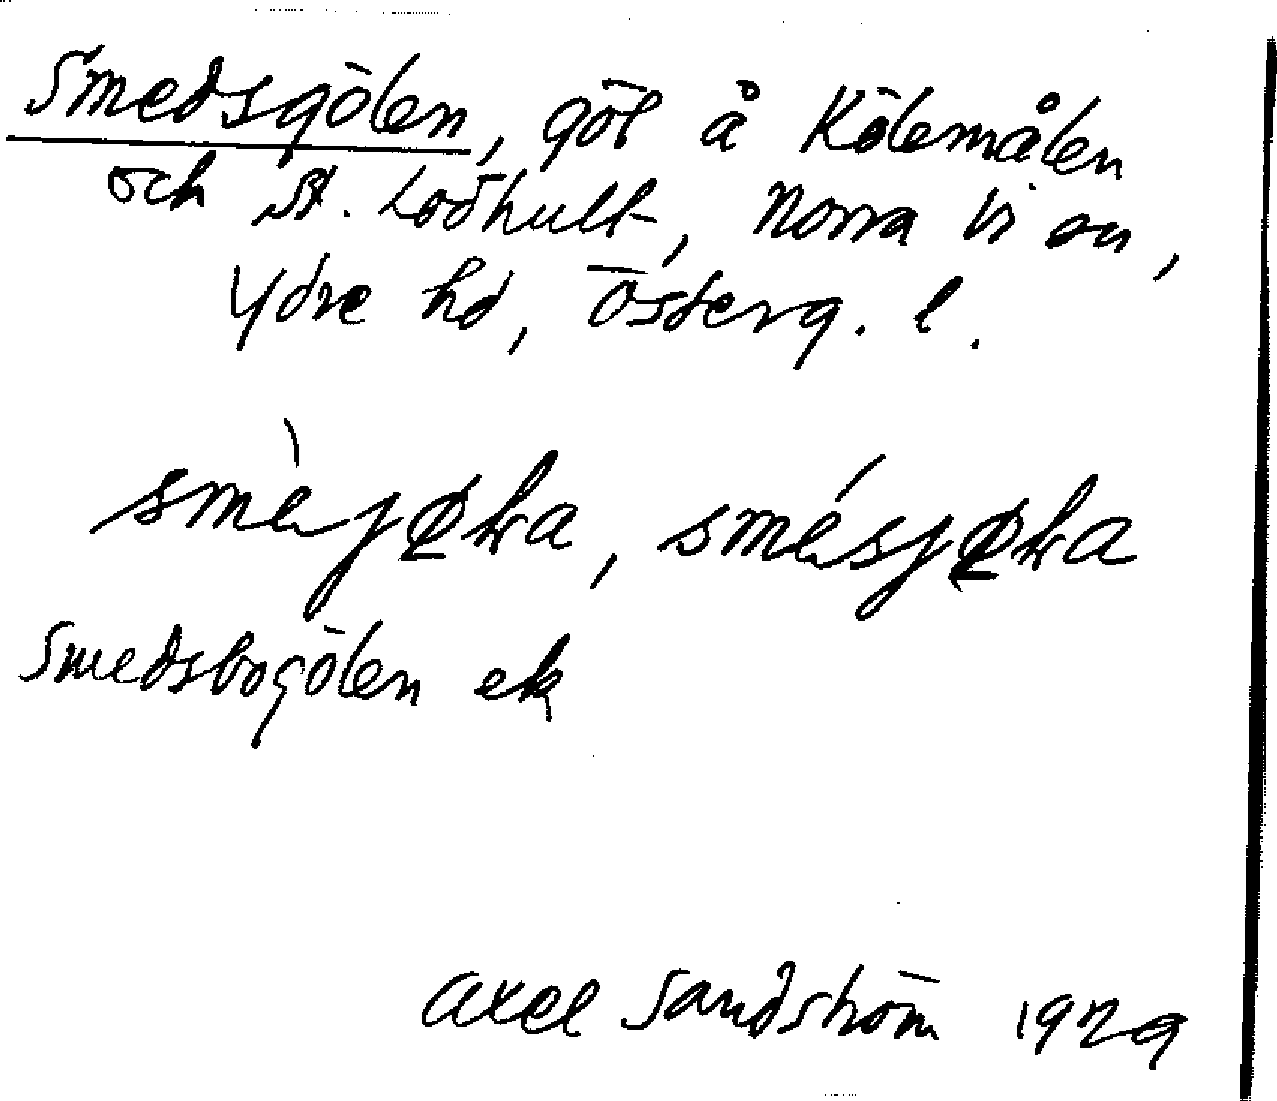 Smedsgölen, göl å Kölemålen
och St. Lodhult, Norra Vi sn,
Ydre hd, Österg. l.
Smedsbogölen ek
Axel Sandström 1929